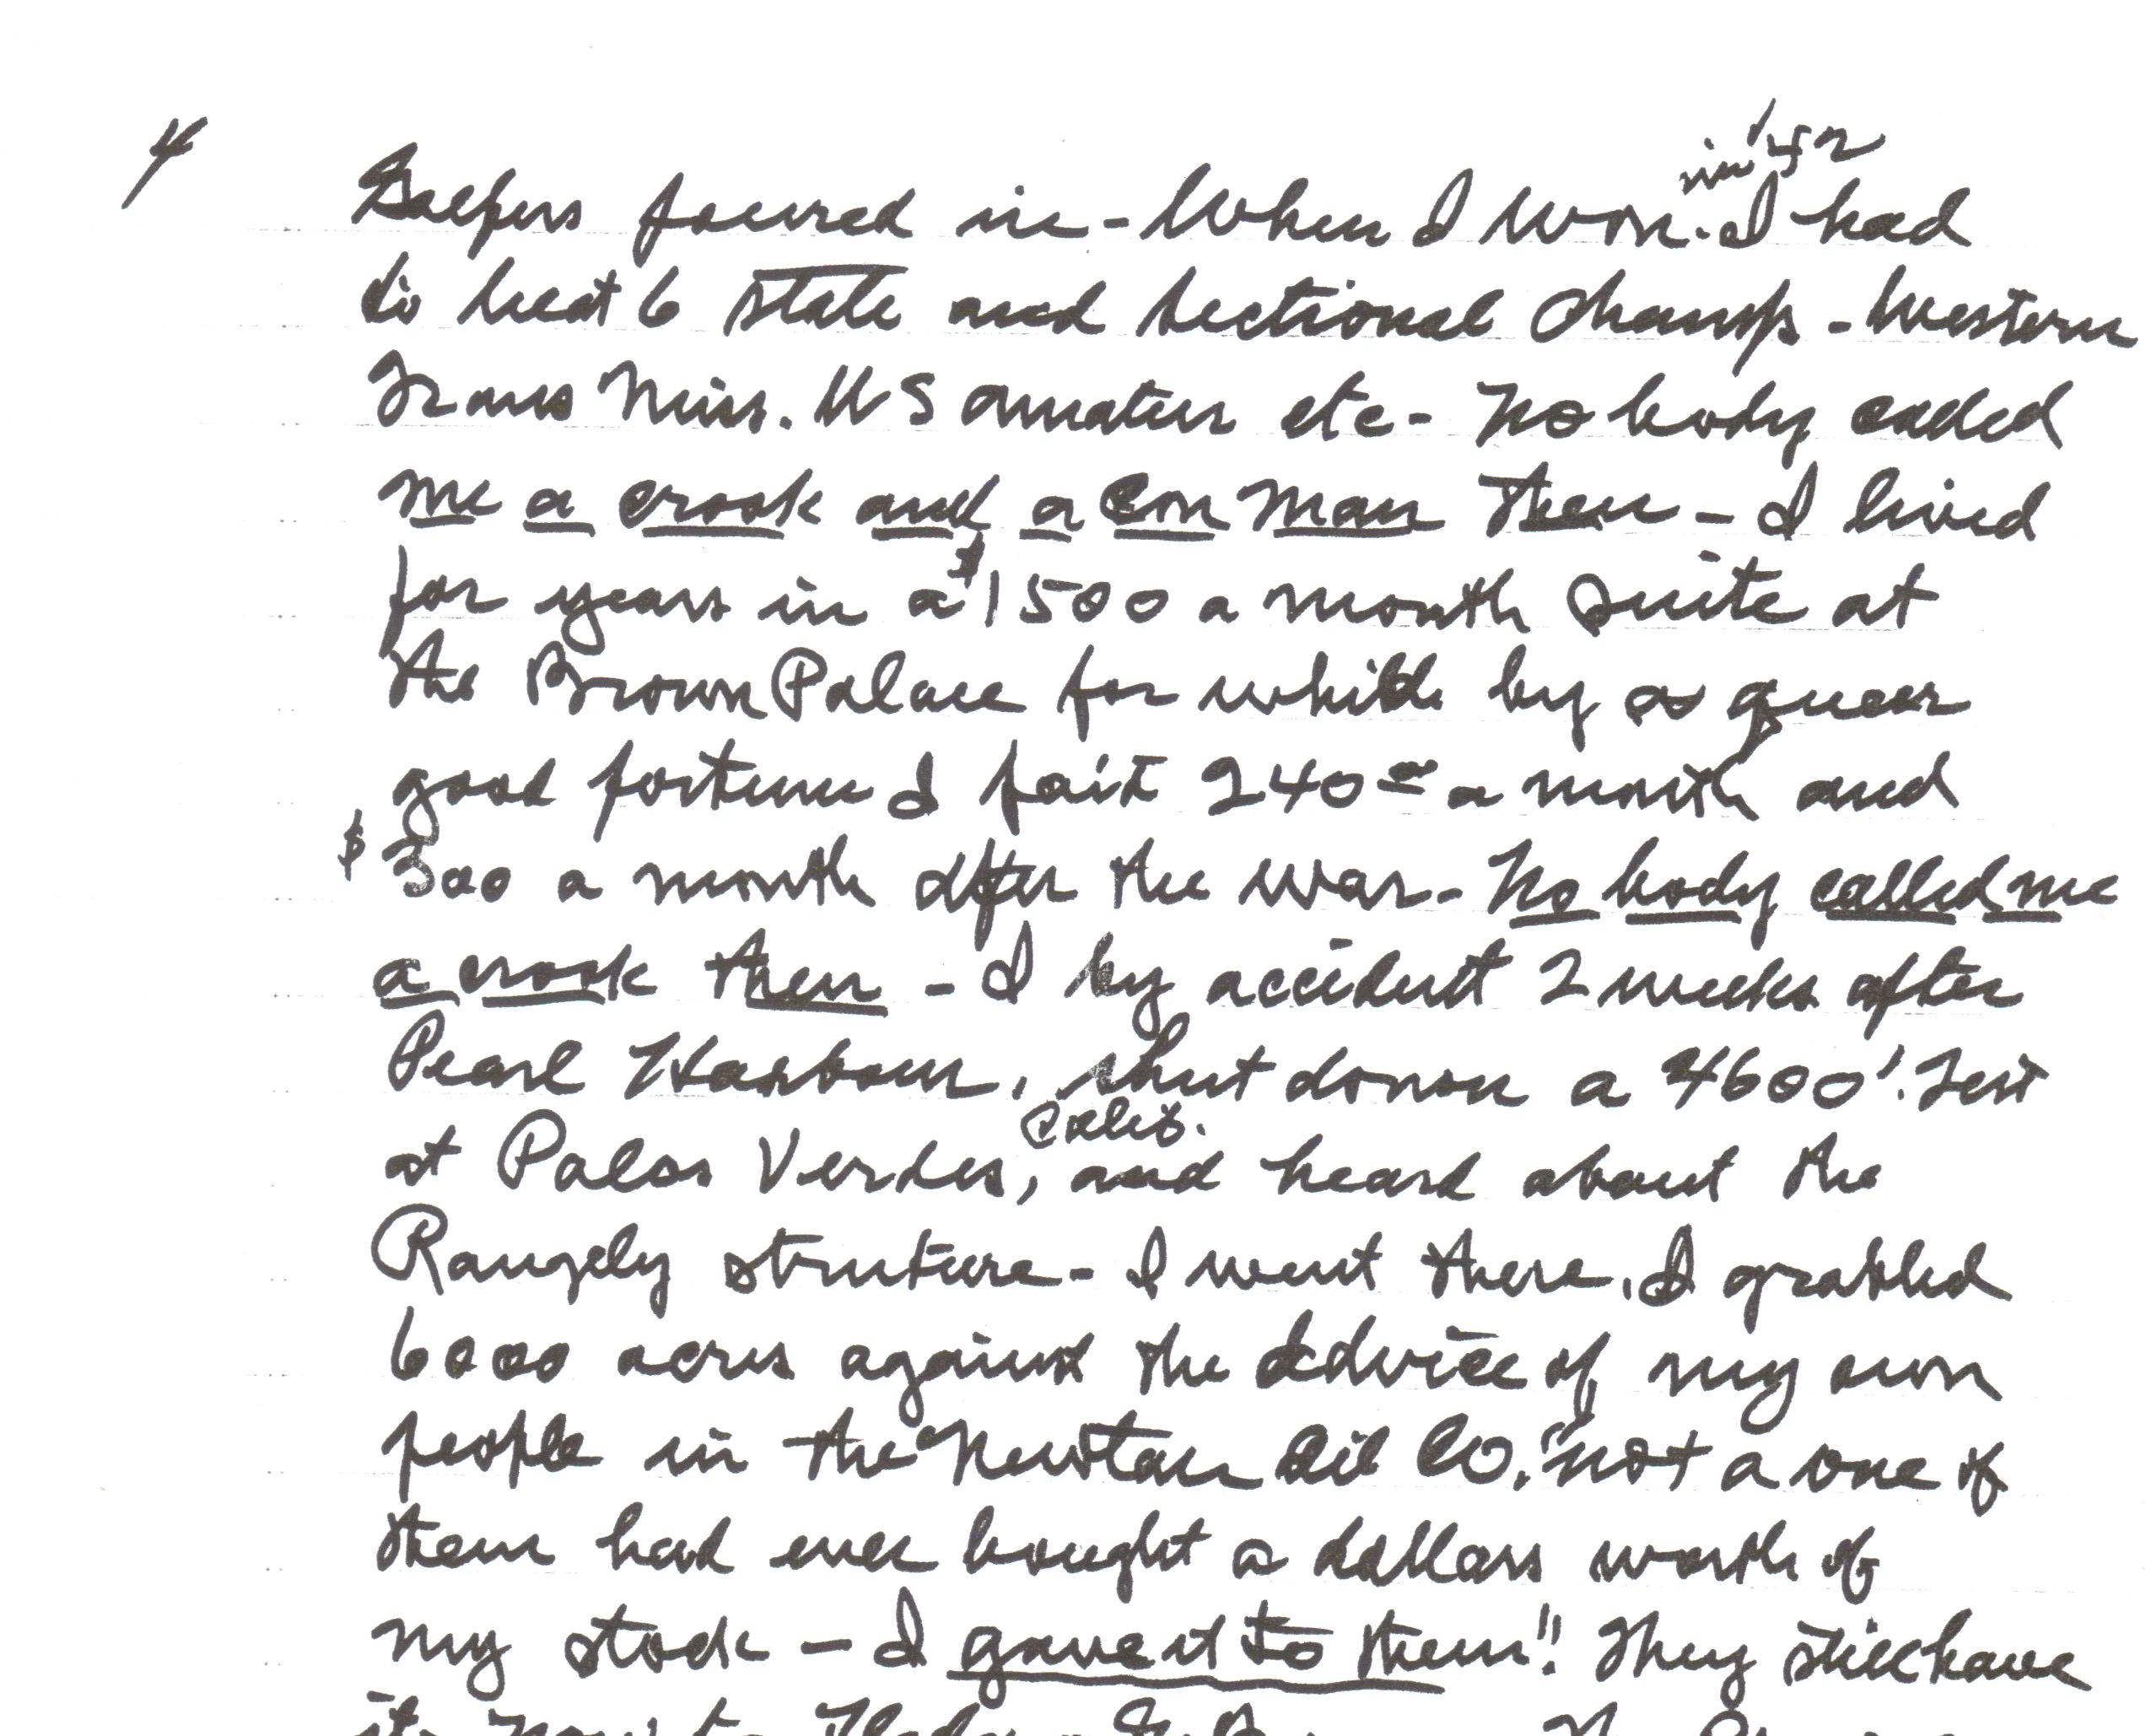 4
Golfers poured in - When I won in '42. I had
to beat 6 state and sectional champs - Western
Trans Miss. US Amateur etc - No body called
me a crook and a con man then - I lived
for years in a $1500 a month suite at
the Brown Palace for which by a queer
good fortune I paid 240 00 a month and
$300 a month after the war - No body called me
a crook then - I by accident 2 weeks after
Pearl Harbour, shut down a 4600'. Test
at Palos Verdes, Calif. and heard about the
Rangely structure - I went there, I grabbed
6000 acres against the advice of my own
people in the Newton Oil Co. Not a one of
them had ever bought a dollars worth of
my stock - I gave it to them!! They still have